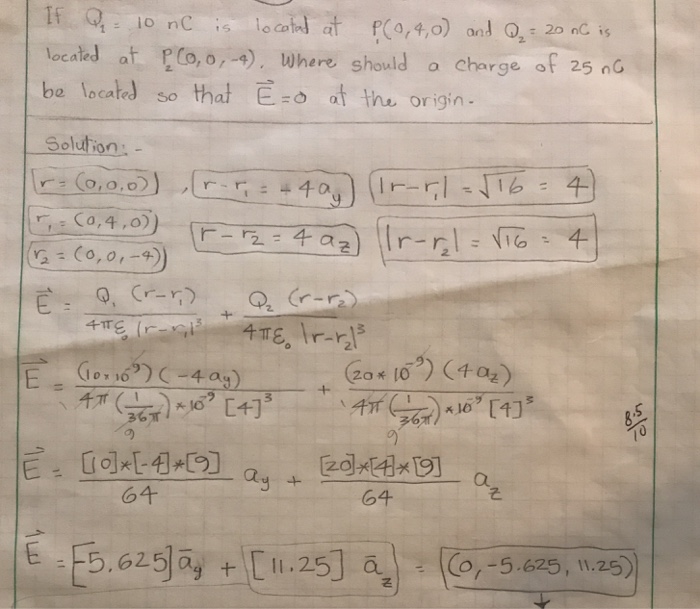 If Q₁ = 10 nC is located at P₁(0,4,0) and Q₂ = 20 nC is
located at P₂(0,0,-4). Where should a charge of 25 nC
be located so that E⃗ = 0 at the origin.
Solution:-
r = (0,0,0) , r - r₁ = -4 a_y |r-r₁| = √16 = 4
r₁ = (0,4,0)
r - r₂ = 4 a_z |r-r₂| = √16 = 4
r₂ = (0,0,-4)
E⃗ = Q₁ (r-r₁) / 4πε₀ |r-r₁|³ + Q₂ (r-r₂) / 4πε₀ |r-r₂|³
E⃗ = (10×10⁻⁹)(-4 a_y) / 4π(1/36π)*10⁻⁹ [4]³ + (20*10⁻⁹)(4 a_z) / 4π(1/36π)*10⁻⁹ [4]³
9 9
8.5/10
E⃗ = [10]*[-4]*[9] / 64 a_y + [20]*[4]*[9] / 64 a_z
E⃗ = [-5.625] ā_y + [11.25] ā_z = (0, -5.625, 11.25)